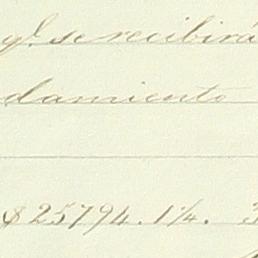 qe. se recibirá
damiento
$25794.1¼. 3